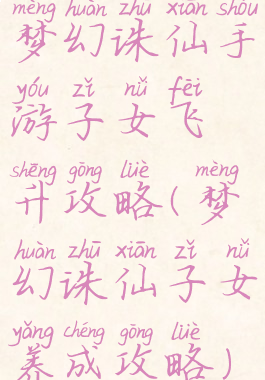 mèng huàn zhū xiān shǒu
梦幻诛仙手
yóu zǐ nǚ fēi
游子女飞
shēng gōng lüè mèng
升攻略(梦
huàn zhū xiān zǐ nǚ
幻诛仙子女
yǎng chéng gōng lüè
养成攻略)